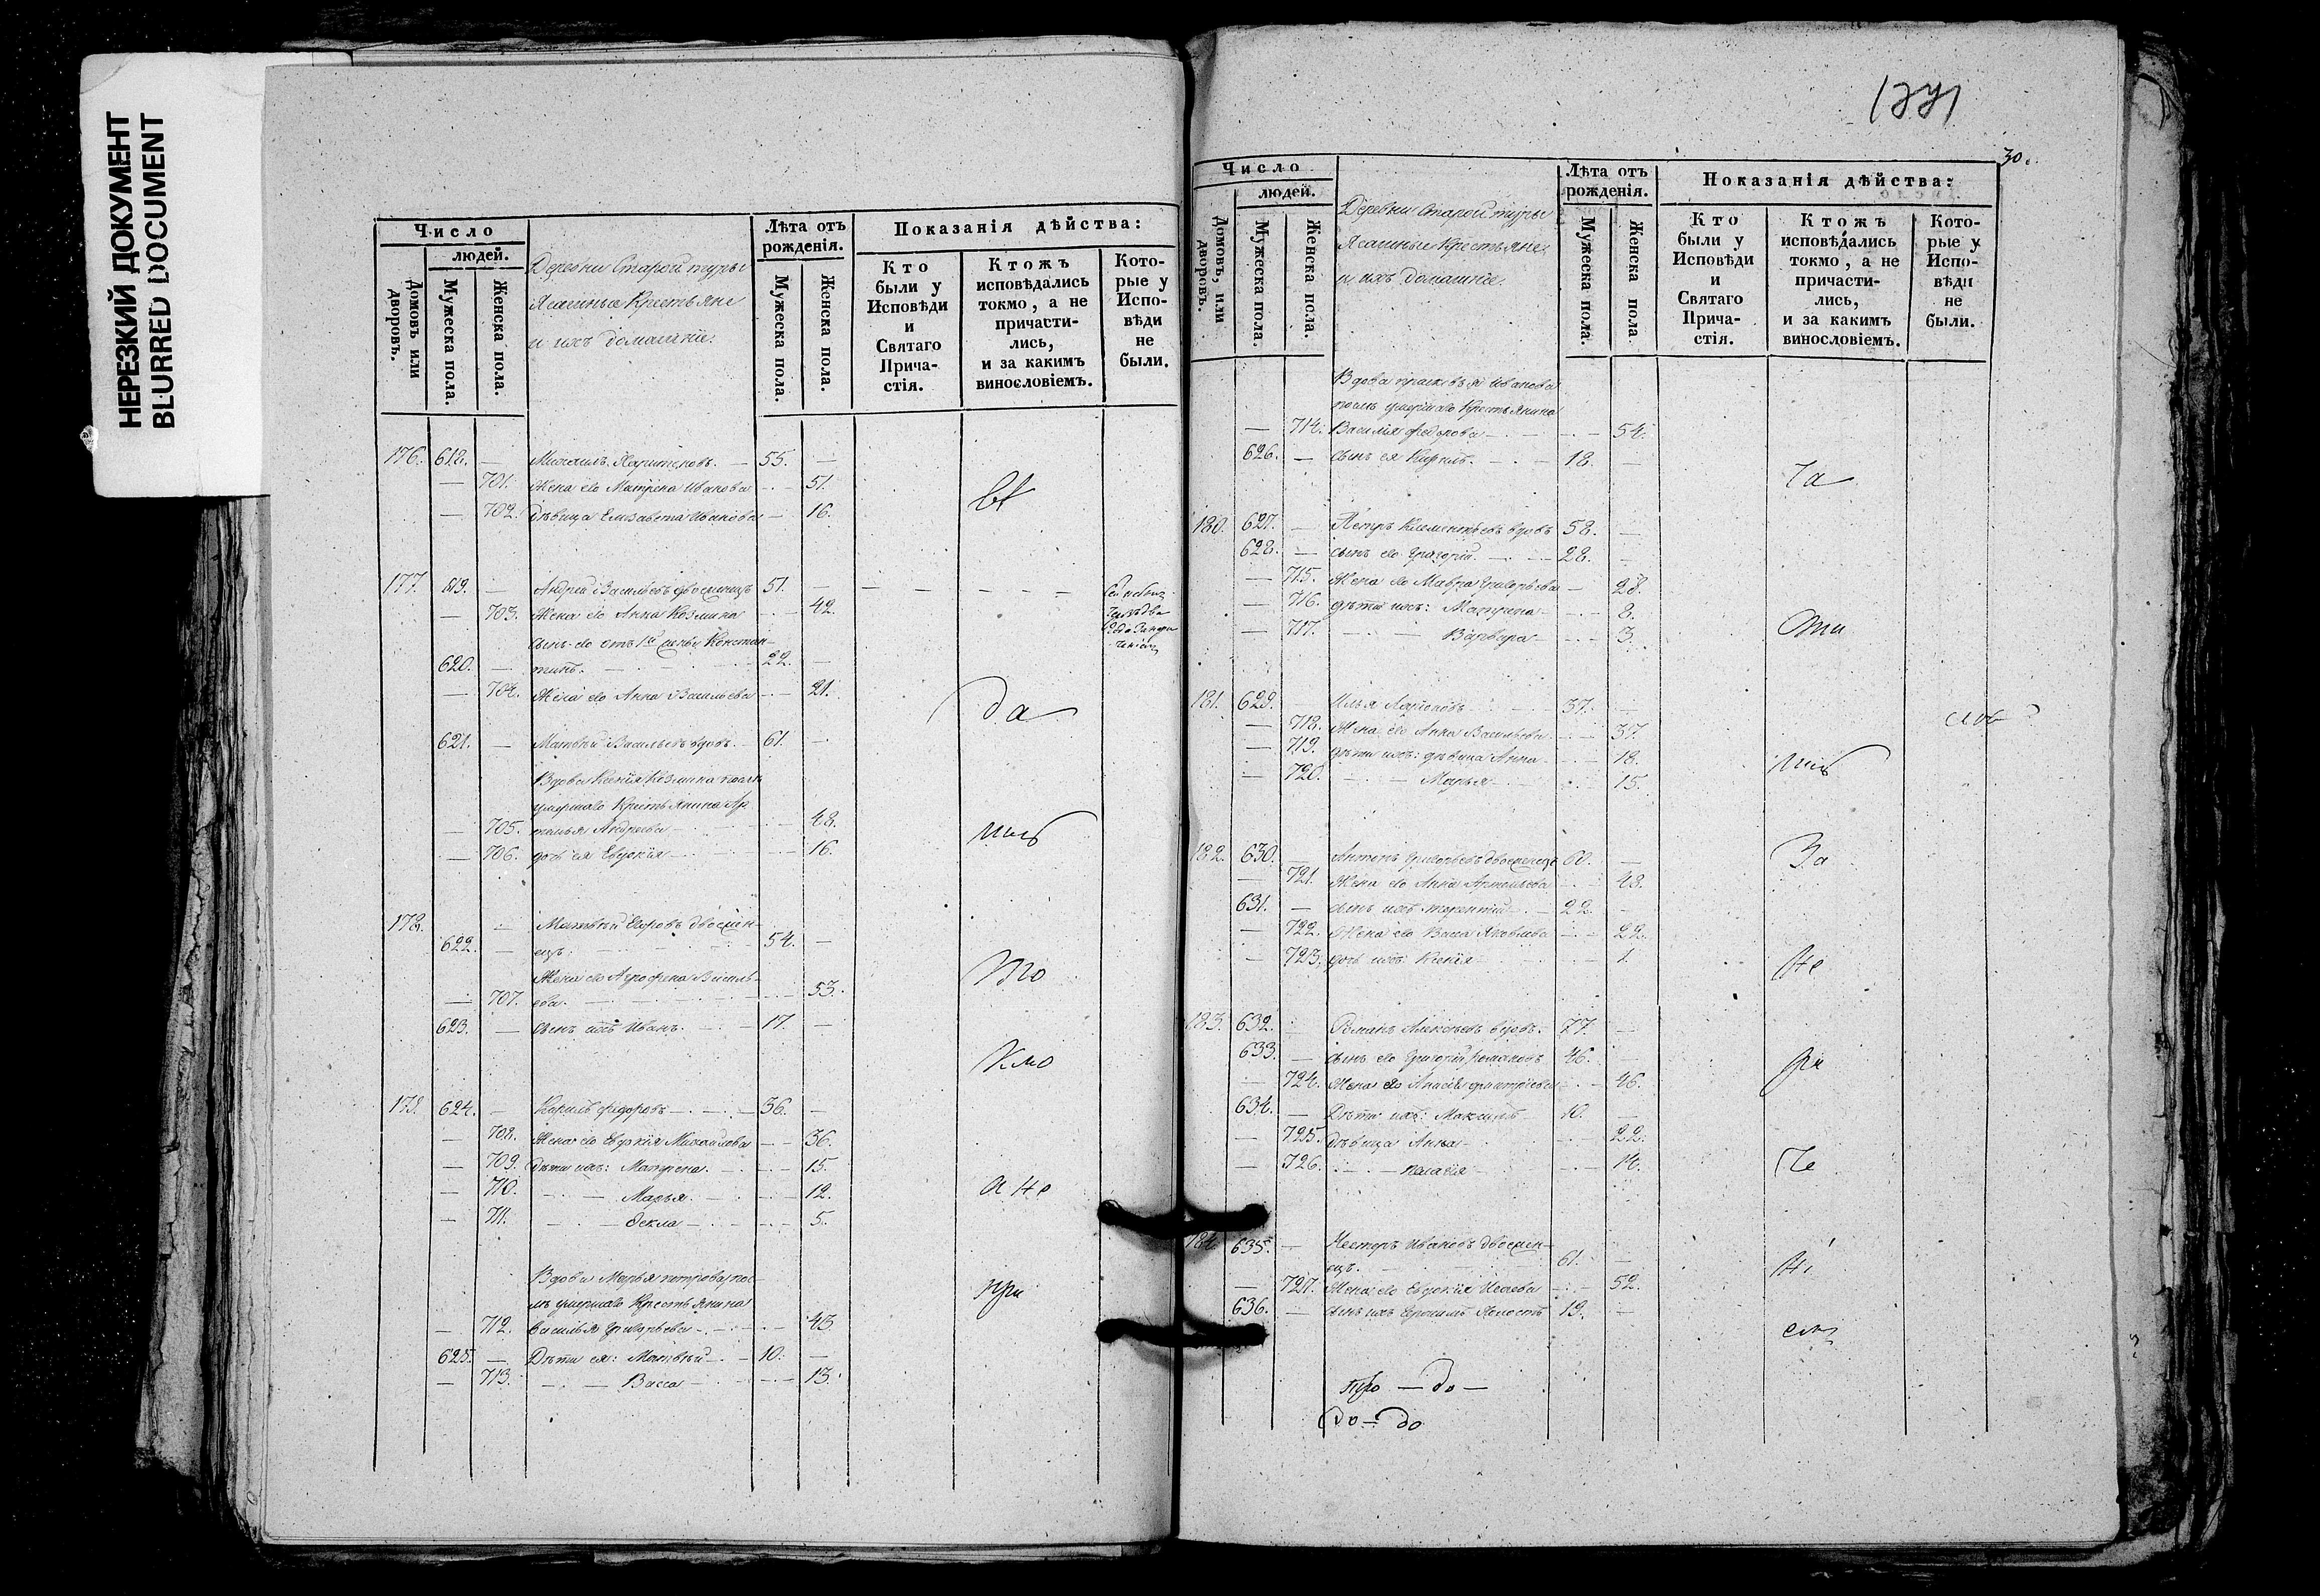 НЕРЕЗКИЙ ДОКУМЕНТ
BLURRED DOCUMENT
Число
людей.
Домовъ или дворовъ.
Мужеска пола.
Женска пола.
Деревни Старой туры
Ясашные Крестьяне
и ихъ домашніе:
Лѣта отъ рожденія.
Мужеска пола.
Женска пола.
Показанія дѣйства:
Кто были у Исповѣди и Святаго Прича-стія.
Ктожъ исповѣдались токмо, а не причасти-лись, и за какимъ винословіемъ.
Кото-рые у Испо-вѣди не были.
176. 618. — Михаилъ Харитоновъ. — 55. —
— 701. Жена его Матрена Иванова — 51.
— 702. Дѣвица Елизавета Иванова — 16.
177. 619. — Андрей Васильевъ двоеженецъ 51. —
— 703. Жена его Анна Козмина — 42.
сынъ его отъ 1й жены Констан-
620. — тинъ. — 22. —
— 704. Жена его Анна Васильева — 21.
да
621. — Матвей Васильевъ вдовъ. — 61. —
Вдова Ксенія Козмина послѣ
умершаго Крестьянина Ар
— 705. темья Андреева — 48.
— 706. дочь ея Евдокія — 16.
178. — Матвѣй Егоровъ двоежен-
622. — ецъ. 54. —
Жена его Агрофена Василь-
— 707. ева. — 53.
623. — сынъ ихъ Иванъ. — 17. —
179. 624. — Кирилъ Федоровъ — 36. —
— 708. Жена его Евдокія Михайлова — 36.
— 709. Дѣти ихъ: Матрена. — 15.
— 710. — Марья. — 12.
— 711. — Фекла — 5.
а не
Вдова Марья петрова пос-
лѣ умершаго Крестьянина
— 712. Василья Григорьева — 43.
при
625. — Дѣти ея: Матвѣй — 10. —
— 713. — Васса — 13.
30.
Число
людей.
Домовъ, или дворовъ.
Мужеска пола.
Женска пола.
Деревни Старой туры
Ясашные Крестьяне
и ихъ домашніе.
Лѣта отъ рожденія.
Мужеска пола.
Женска пола
Показанія дѣйства:
Кто были у Исповѣди и Святаго Прича-стія.
Ктожъ исповѣдались токмо, а не причасти-лись, и за какимъ винословіемъ.
Кото-рые у Испо-вѣди не были.
Вдова прасковья Иванова
послѣ умершаго Крестьянина
— 714. Василія Федорова — 54.
626. — сынъ ея Кирилъ. — 18. —
ча
180. 627. — Петръ Климентьевъ вдовъ 58. —
628. — сынъ его Григорій — 28. —
— 715. Жена его Мавра Григорьева — 28.
— 716. дѣти ихъ: Матрена — 8.
— 717. — Варвара — 3.
сти
181. 629. — Илья Ларіоновъ 37. —
— 718. Жена его Анна Васильева — 37.
— 719. дѣти ихъ: дѣвица Анна — 18.
— 720. — Марья — 15.
182. 630. — Антонъ Григорьевъ двоеженецъ 60. —
За
— 721. Жена его Анна Артемьева — 48.
631. — сынъ ихъ терентій — 22. —
— 722. Жена его Васса Яковлева — 22.
— 723. дочь ихъ Ксенія — 1.
не
183. 632. — Романъ Алексѣевъ вдовъ. 77. —
633. — сынъ его Григорій романовъ 46. —
ра
— 724. Жена его Анисія Дмитріева — 46.
634. — Дѣти ихъ: Максимъ 10. —
— 725. дѣвица Анна — 22.
— 726. — палагія — 14.
че
184. 635. — Несторъ Ивановъ двоежен-
ецъ. 61. —
ні
— 727. Жена его Евдокія Исаева — 52.
636. — сынъ ихъ Ефимъ Холостъ 19. —
емъ